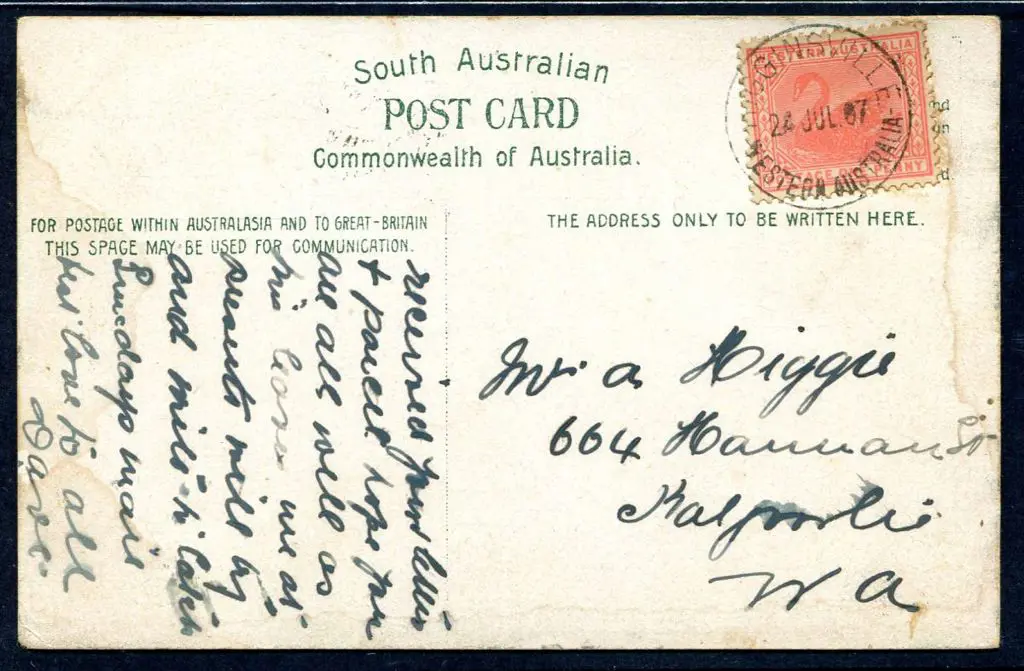 South Australian
POST CARD
Commonwealth of Australia.
WESTERN AUSTRALIA
PENNY
24 JUL. 07
WESTERN AUSTRALIA
FOR POSTAGE WITHIN AUSTRALASIA AND TO GREAT-BRITAIN
THIS SPACE MAY BE USED FOR COMMUNICATION.
THE ADDRESS ONLY TO BE WRITTEN HERE.
received your letter
& parcel hope you
are all well as
this leaves me at
will by
and wish to catch
Sundays mail
love to all
Dave.
Mr A Higgie
664 Hannan St
Kalgoorlie
W A